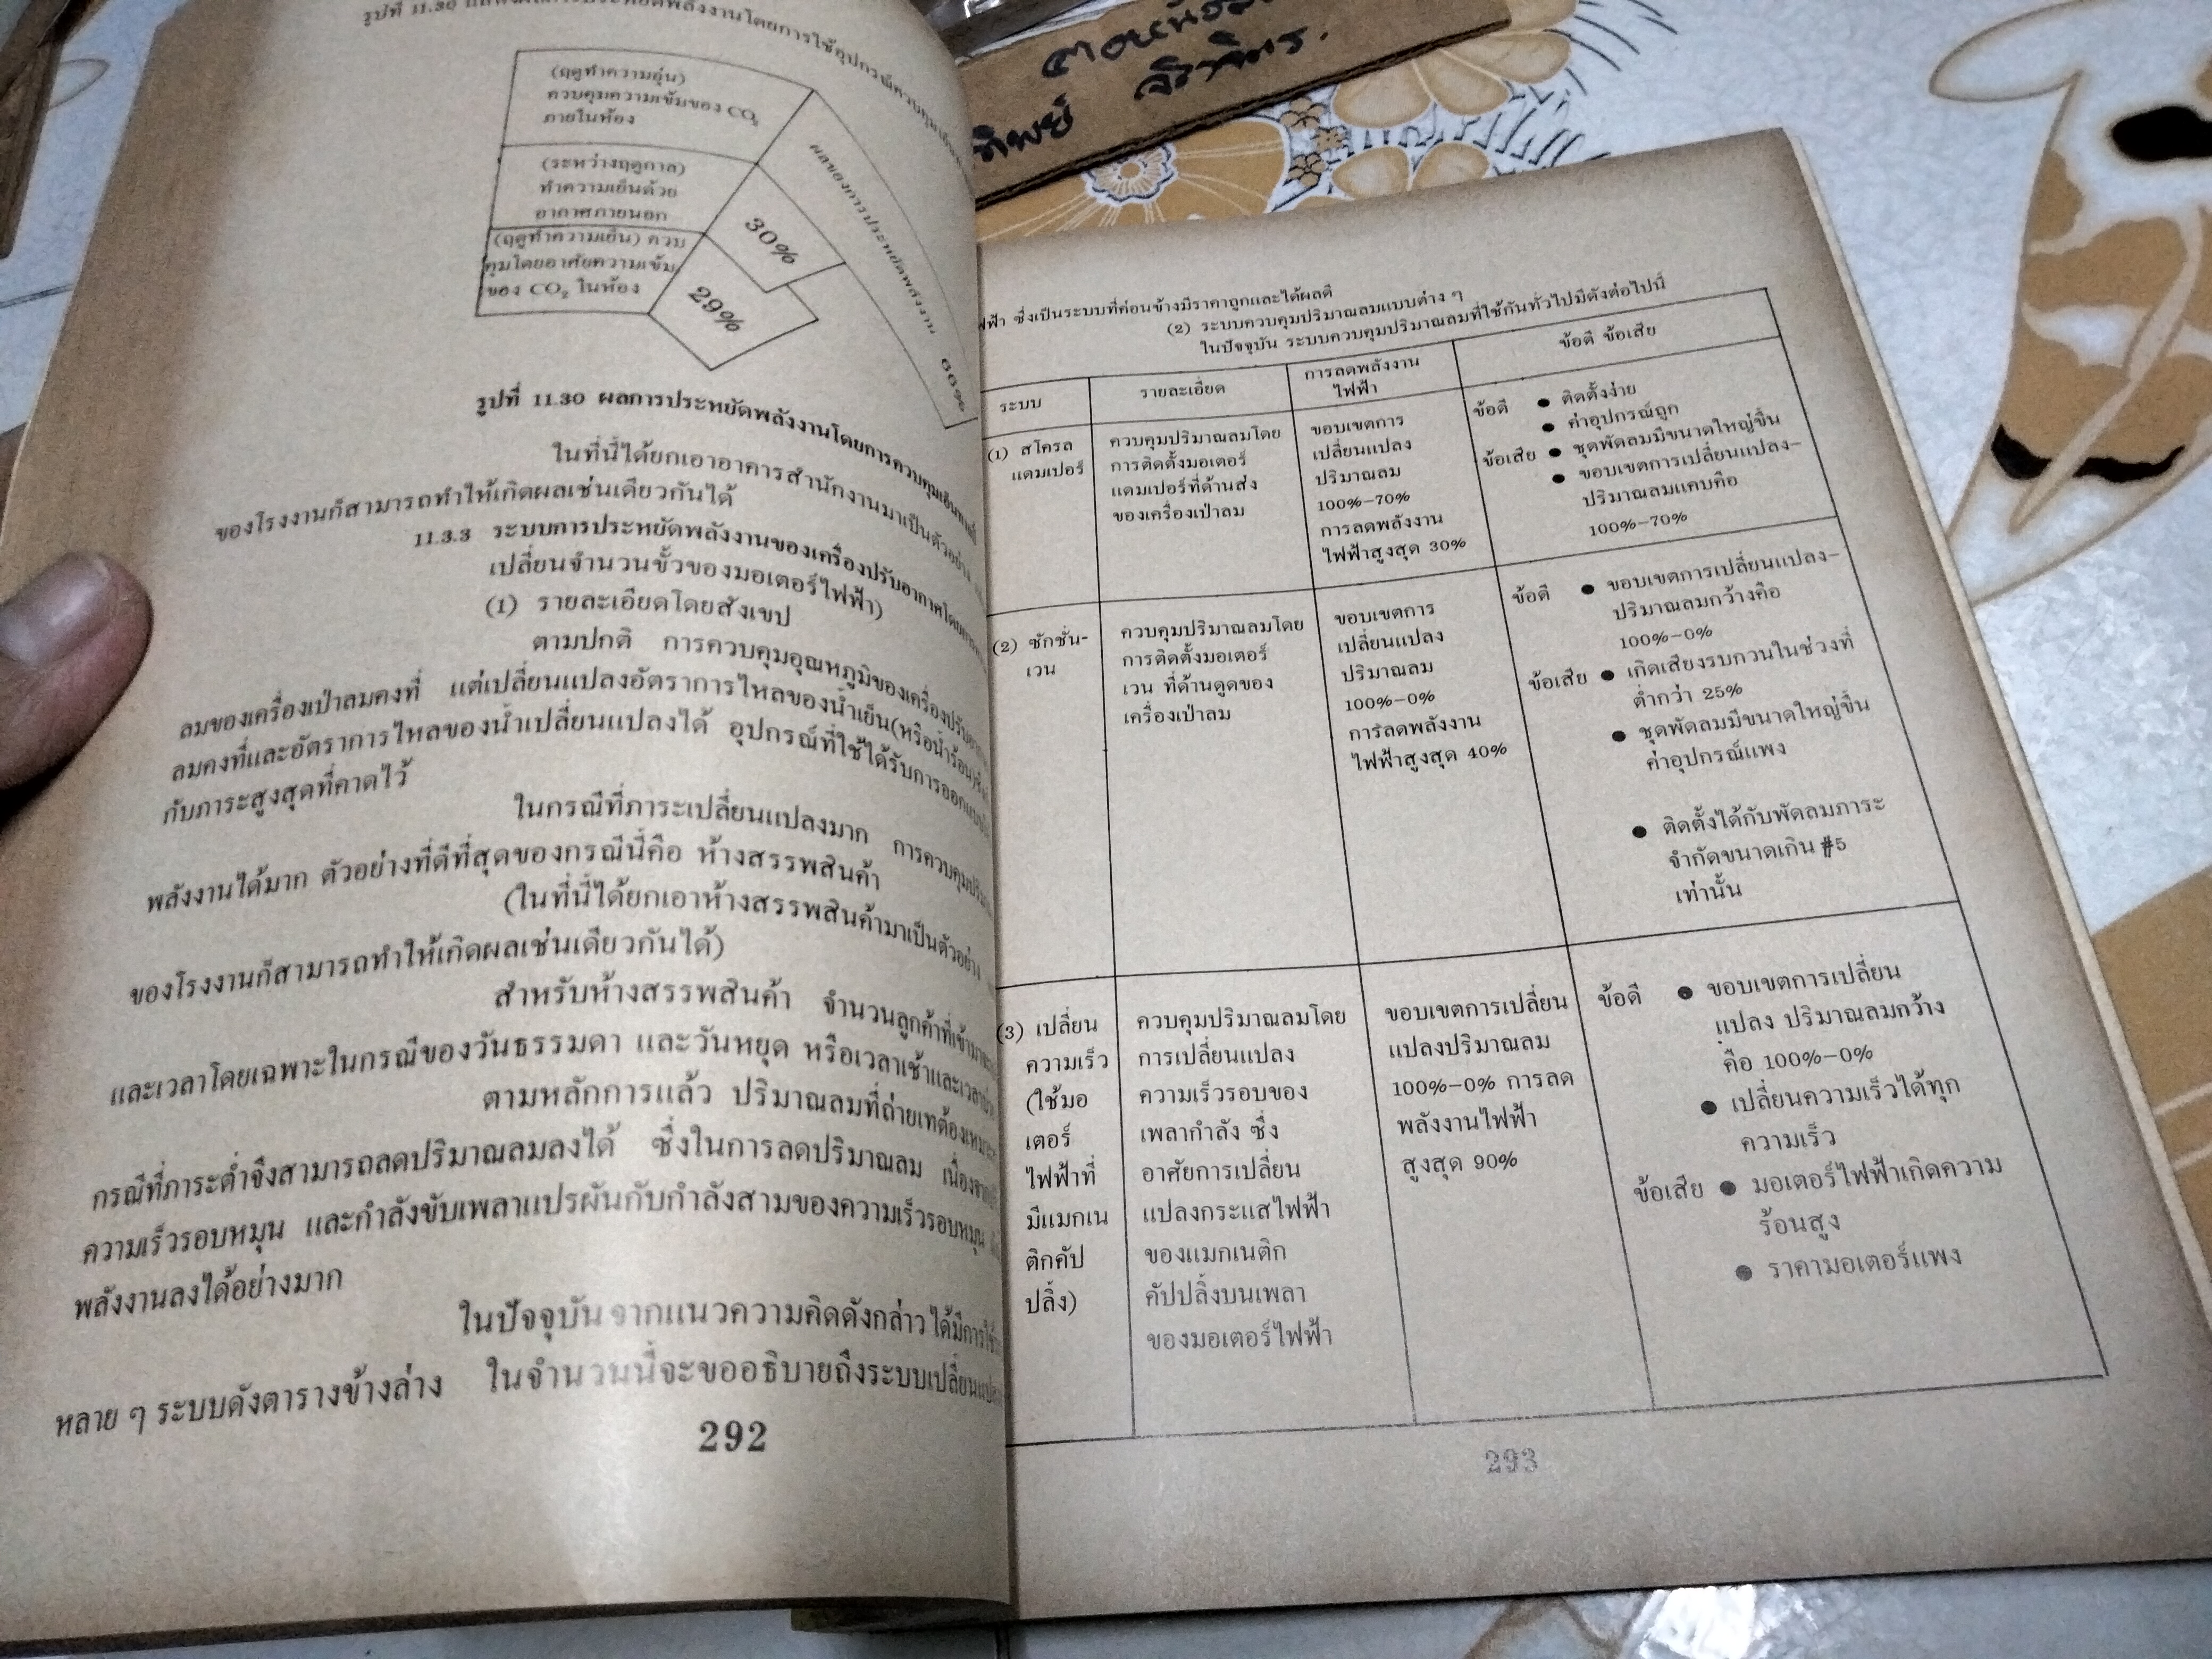 รูปที่ 11.30
(ฤดูทำความอุ่น)
ควบคุมความเข้มของ CO₂
ภายในห้อง
(ระหว่างฤดูกาล)
ทำความเย็นด้วย
อากาศภายนอก
(ฤดูทำความเย็น) ควบ
คุมโดยอาศัยความเข้ม
ของ CO₂ ในห้อง
30%
29%
ผลของการประหยัดพลังงาน
รูปที่ 11.30 ผลการประหยัดพลังงานโดยการควบคุม
ในที่นี้ได้ยกเอาอาคารสำนักงานมาเป็นตัวอย่าง
ของโรงงานก็สามารถทำให้เกิดผลเช่นเดียวกันได้
11.3.3 ระบบการประหยัดพลังงานของเครื่องปรับอากาศโดยการ
เปลี่ยนจำนวนขั้วของมอเตอร์ไฟฟ้า)
(1) รายละเอียดโดยสังเขป
ตามปกติ การควบคุมอุณหภูมิของเครื่องปรับอากาศ
ลมของเครื่องเป่าลมคงที่ แต่เปลี่ยนแปลงอัตราการไหลของน้ำเย็น(หรือน้ำร้อน)
ลมคงที่และอัตราการไหลของน้ำเปลี่ยนแปลงได้ อุปกรณ์ที่ใช้ได้รับการออกแบบ
กับภาระสูงสุดที่คาดไว้
ในกรณีที่ภาระเปลี่ยนแปลงมาก การควบคุม
พลังงานได้มาก ตัวอย่างที่ดีที่สุดของกรณีนี้คือ ห้างสรรพสินค้า
(ในที่นี้ได้ยกเอาห้างสรรพสินค้ามาเป็นตัวอย่าง
ของโรงงานก็สามารถทำให้เกิดผลเช่นเดียวกันได้)
สำหรับห้างสรรพสินค้า จำนวนลูกค้าที่เข้ามา
และเวลาโดยเฉพาะในกรณีของวันธรรมดา และวันหยุด หรือเวลาเช้าและเวลา
ตามหลักการแล้ว ปริมาณลมที่ถ่ายเทต้อง
กรณีที่ภาระต่ำจึงสามารถลดปริมาณลมลงได้ ซึ่งในการลดปริมาณลม เนื่องจาก
ความเร็วรอบหมุน และกำลังขับเพลาแปรผันกับกำลังสามของความเร็วรอบหมุน
พลังงานลงได้อย่างมาก
ในปัจจุบัน จากแนวความคิดดังกล่าว ได้มีการใช้
หลาย ๆ ระบบดังตารางข้างล่าง ในจำนวนนี้จะขออธิบายถึงระบบเปลี่ยน
292
ทิพย์ จิ
ไฟฟ้า ซึ่งเป็นระบบที่ค่อนข้างมีราคาถูกและได้ผลดี
(2) ระบบควบคุมปริมาณลมแบบต่าง ๆ
ในปัจจุบัน ระบบควบคุมปริมาณลมที่ใช้กันทั่วไปมีดังต่อไปนี้
ระบบ
รายละเอียด
การลดพลังงาน
ไฟฟ้า
ข้อดี ข้อเสีย
(1) สโครล
แดมเปอร์
ควบคุมปริมาณลมโดย
การติดตั้งมอเตอร์
แดมเปอร์ที่ด้านส่ง
ของเครื่องเป่าลม
ขอบเขตการ
เปลี่ยนแปลง
ปริมาณลม
100%–70%
การลดพลังงาน
ไฟฟ้าสูงสุด 30%
ข้อดี ● ติดตั้งง่าย
● ค่าอุปกรณ์ถูก
ข้อเสีย ● ชุดพัดลมมีขนาดใหญ่ขึ้น
● ขอบเขตการเปลี่ยนแปลง–
ปริมาณลมแคบคือ
100%–70%
(2) ซักชั่น-
เวน
ควบคุมปริมาณลมโดย
การติดตั้งมอเตอร์
เวน ที่ด้านดูดของ
เครื่องเป่าลม
ขอบเขตการ
เปลี่ยนแปลง
ปริมาณลม
100%–0%
การลดพลังงาน
ไฟฟ้าสูงสุด 40%
ข้อดี ● ขอบเขตการเปลี่ยนแปลง–
ปริมาณลมกว้างคือ
100%–0%
ข้อเสีย ● เกิดเสียงรบกวนในช่วงที่
ต่ำกว่า 25%
● ชุดพัดลมมีขนาดใหญ่ขึ้น
ค่าอุปกรณ์แพง
● ติดตั้งได้กับพัดลมภาระ
จำกัดขนาดเกิน #5
เท่านั้น
(3) เปลี่ยน
ความเร็ว
(ใช้มอ
เตอร์
ไฟฟ้าที่
มีแมกเน
ติกคัป
ปลิ้ง)
ควบคุมปริมาณลมโดย
การเปลี่ยนแปลง
ความเร็วรอบของ
เพลากำลัง ซึ่ง
อาศัยการเปลี่ยน
แปลงกระแสไฟฟ้า
ของแมกเนติก
คัปปลิ้งบนเพลา
ของมอเตอร์ไฟฟ้า
ขอบเขตการเปลี่ยน
แปลงปริมาณลม
100%–0% การลด
พลังงานไฟฟ้า
สูงสุด 90%
ข้อดี ● ขอบเขตการเปลี่ยน
แปลง ปริมาณลมกว้าง
คือ 100%–0%
● เปลี่ยนความเร็วได้ทุก
ความเร็ว
ข้อเสีย ● มอเตอร์ไฟฟ้าเกิดความ
ร้อนสูง
● ราคามอเตอร์แพง
293